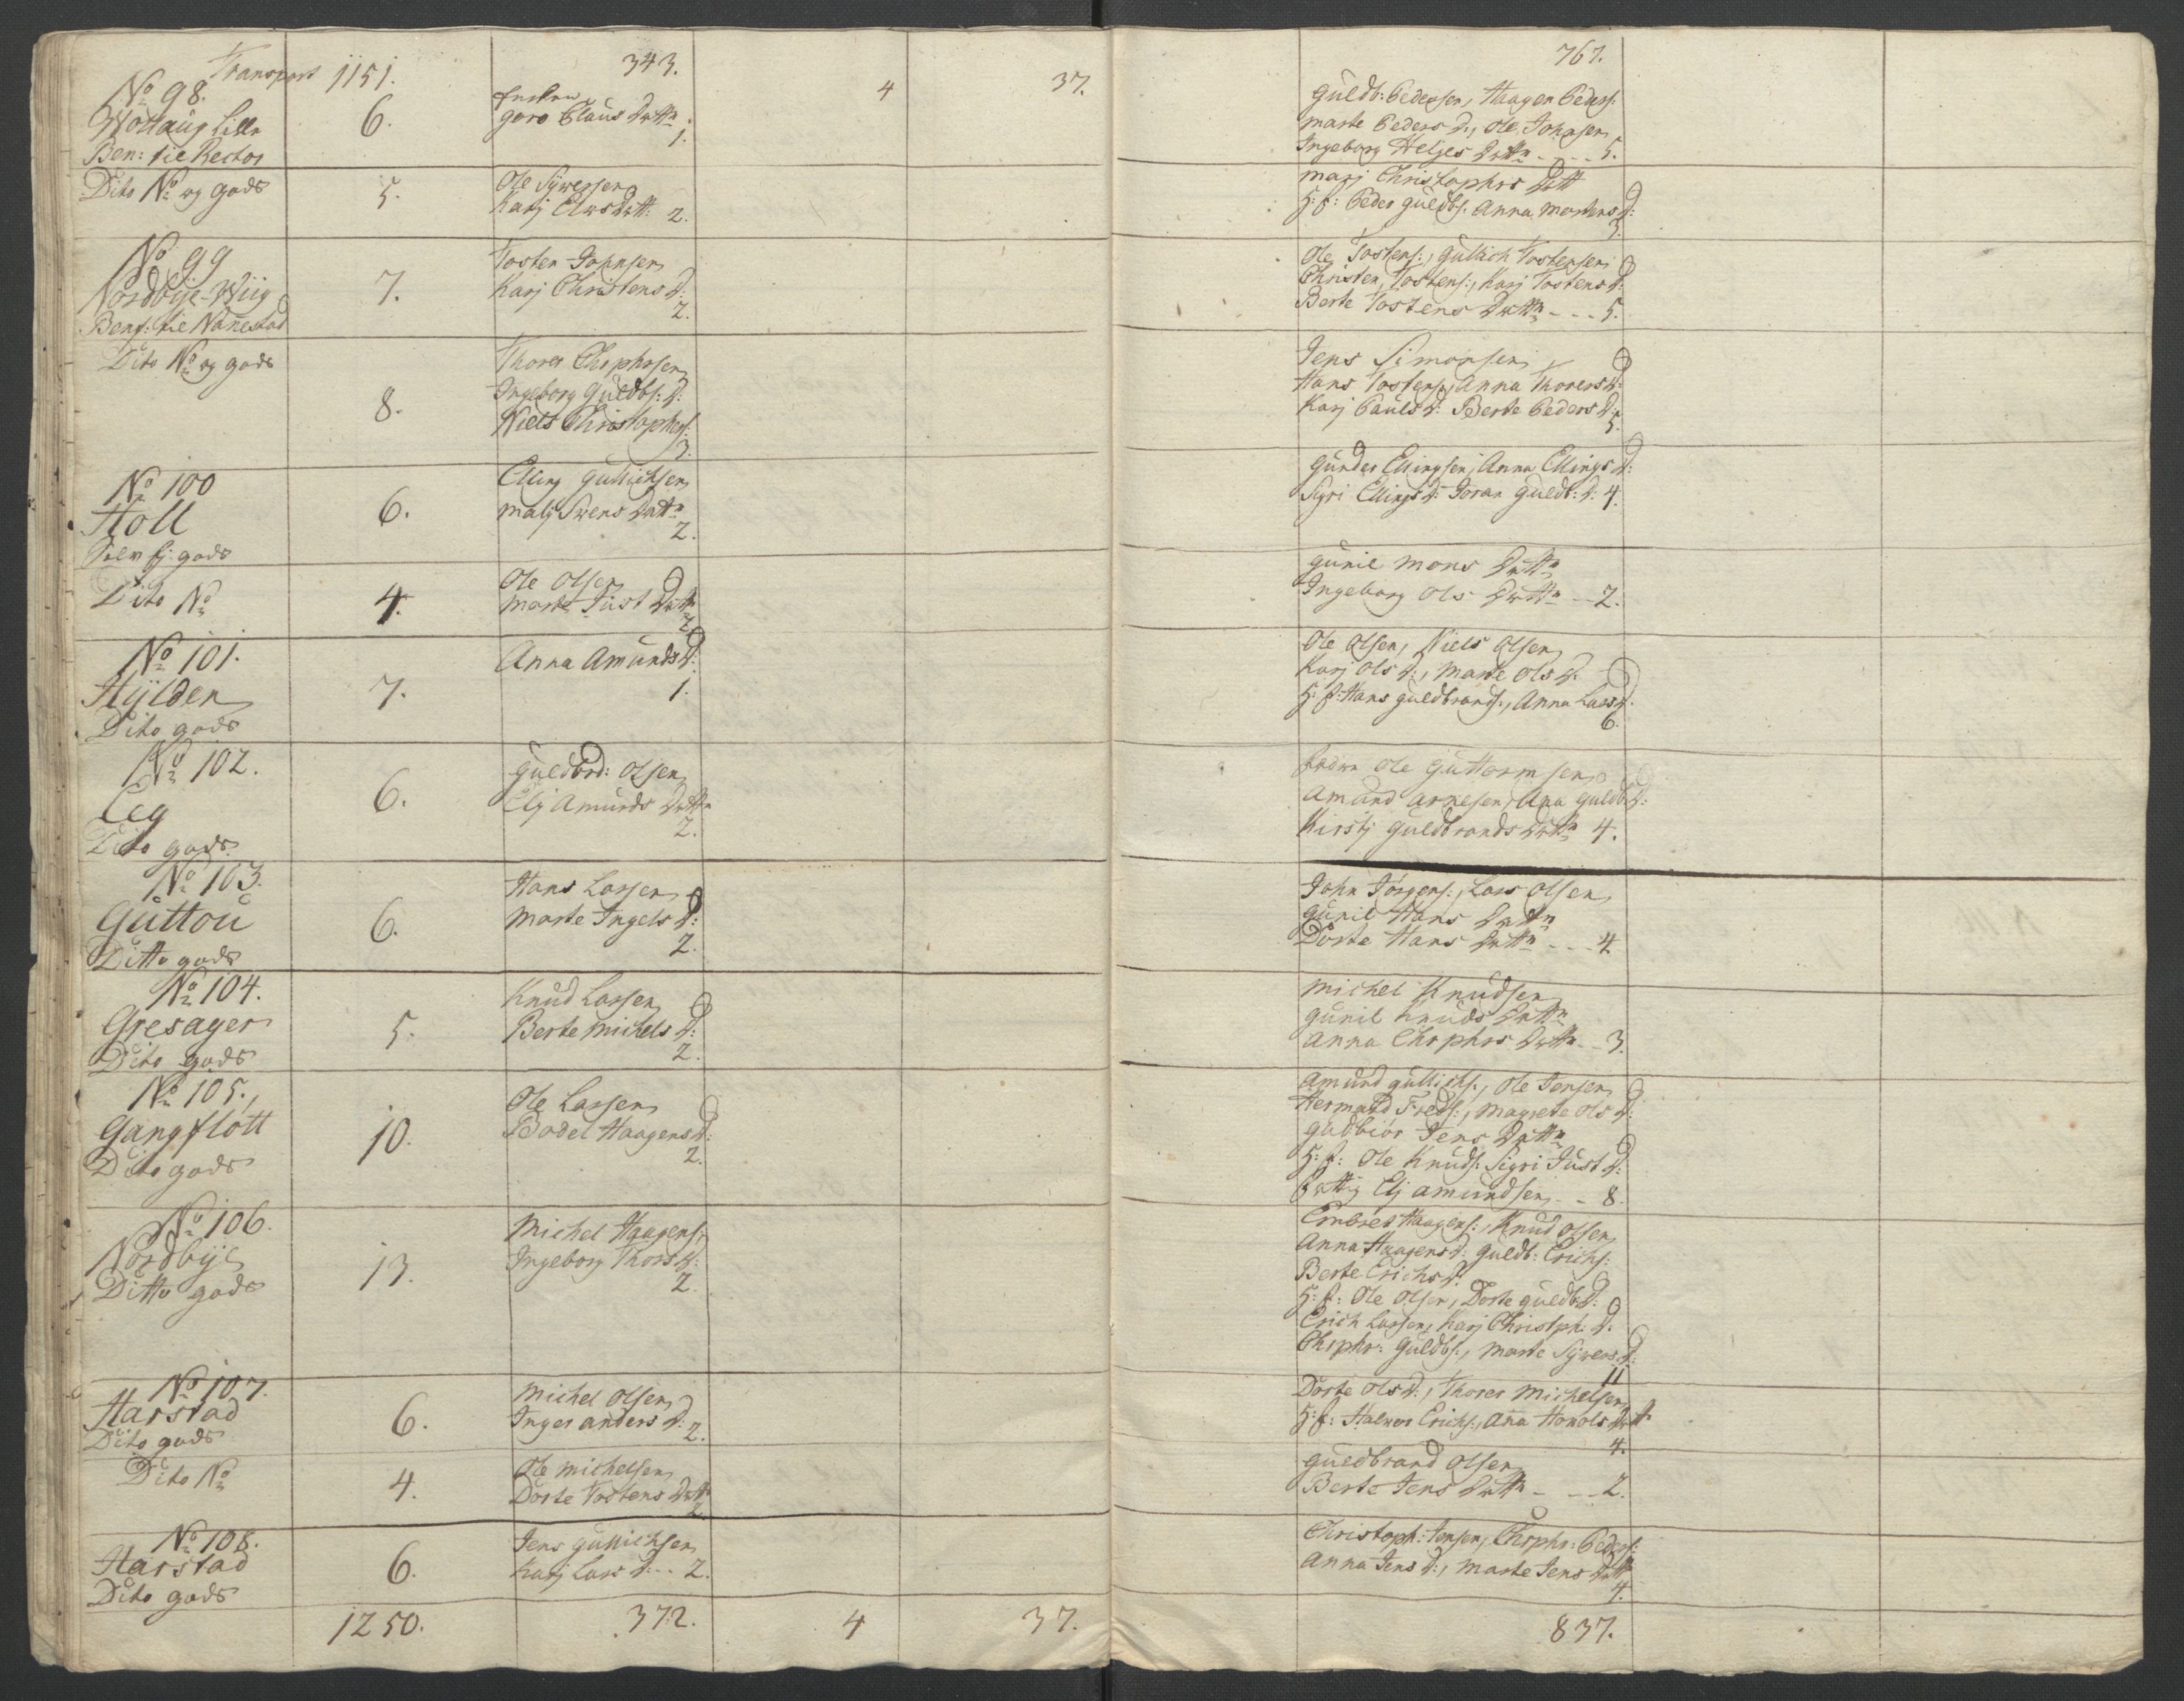 Transport 1151. 343. 4 37. 767.
No 98.
Ben: til Rector
6.
Enken
goro Claus Dattr
1.
Guldb: Pedersen, Haagen Peders:
marte Peders D:, Ole Johnsen
Ingeborg Helges Dattr - - - 5.
Dito No og gods
5.
Ole Sÿversen
Karj Elvs Datt: 2.
marj Christophrs Datt
H: f: Peder guldbs: Anna Mortens D:
3.
No 99
Nordbÿe-Wiig
Benf: til Nanestad
7.
Tosten Johnsen
Karj Christens D:
2.
Ole Tostens:, Gullich Tostensen
Christen Tostens:, Karj Tostens D:
Berte Tostens Dattr - - - 5.
Dito No og gods
8.
Thorer Chrphrsen
Ingeborg Guldbs: D:
Niels Christophers:
3.
Jens Simonsen
Hans Tostens: Anna Thorers D:
Karj Pauls D: Berte Peders D:
5.
No 100
Holl
Selv Ej: gods
6.
Elling Gullichsen
malj Svens Dattr
2.
Gunder Ellingsen, Anna Ellings D:
Sigri Ellings D: Joran Guldb: D: 4.
Dito No
4.
Ole Olsen
marte Just Dattr
2.
Gunil Mons Dattr
Ingeborg Ols Dattr - - 2.
No 101.
Hÿlden
Dito gods
7.
Anna Amunds D:
1.
Ole Olsen, Niels Olsen
Karj Ols D:, Marte Ols D.
H: f: Hans guldbrands:, Anna Lars D.
6.
No 102.
Eeg
Dito gods
6.
Guldbrd: Olsen
Elj Amunds Dattr
2.
Ole Guttormsen
Amund Arnesen, Ana Guldb: D:
Kirstj Guldbrands Dattr 4.
No 103.
Guttou
Ditto gods
6.
Hans Larsen
Marte Ingels D:
2.
John Jörgens:, Lars Olsen
Gunil Hans Dattr
Dorte Hans Dattr - - - 4
No 104.
Gresager
Dito gods
5.
Knud Larsen
Berte Michels D:
2.
Michel Knudsen
Gunil Knuds Dattr
Anna Chrphrs Dattr - - 3.
No 105.,
Gangflott
Dito gods
10.
Ole Larsen
Bodel Haagens D:
2.
Amund Gullichs:, Ole Jensen
Hermand Freds:, Magrete Ols D:
Gudbiör Jens Dattr
H: f: Ole Knuds: Sigri Just D:
Elj Amundsen - - 8.
No 106.
Nordbÿe
Ditto gods
13.
Michel Haagens:
Ingeborg Thors D:
2.
Embret Haagens:, Knud Olsen
Anna Haagens D: Guldb: Erichs:
Berte Erichs D:
H: f: Ole Olsen, Dorte Guldb: D:
Erich Larsen, Karj Christph: D.
Chrphr: Guldbs:, Marte Sÿvers D:
11
No 107.
Harstad
Dito gods
6.
Michel Olsen
Inger Anders D:
2.
Dorte Ols D:, Thorer Michelsen
H: f: Halvor Erichs:, Ana Honols Dattr
4.
Dito No
4.
Ole Michelsen
Dorte Tostens Dattr
2.
Guldbrand Olsen
Berte Jens Dattr - - - 2.
No 108.
Harstad
Dito gods
6.
Jens Gullichsen
Karj Lars D: - - 2.
Christoph: Jensen, Chrphr: Peders:
Anna Jens D:, Marte Jens Dattr
4.
1250. 372. 4 37. 837.